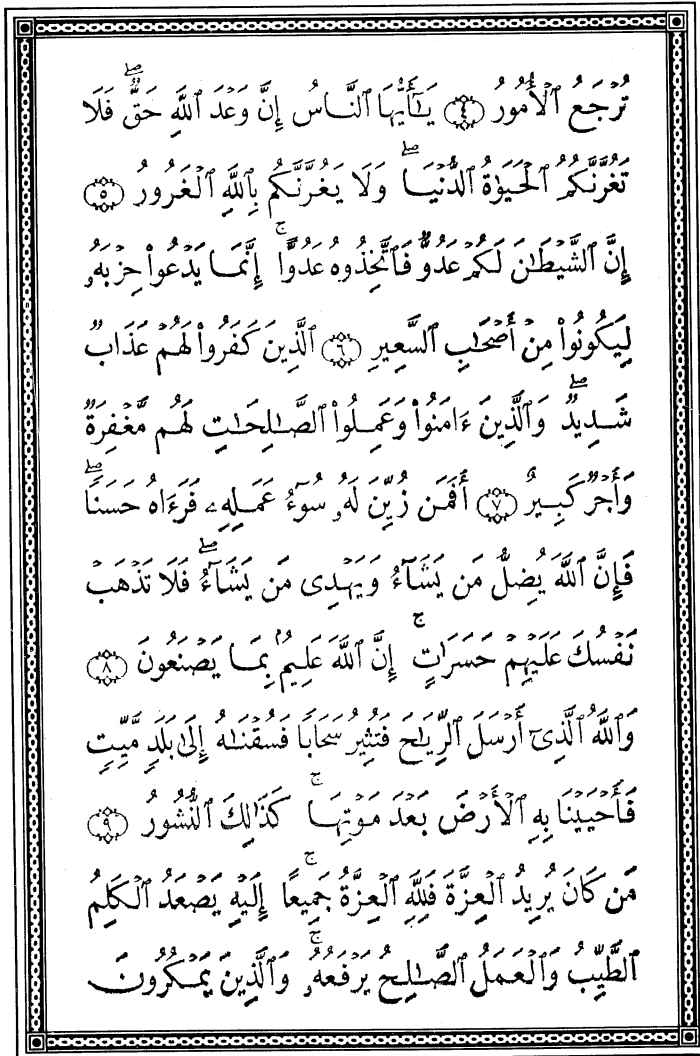 تُرْجَعُ ٱلْأُمُورُ ﴿٤﴾ يَـٰٓأَيُّهَا ٱلنَّاسُ إِنَّ وَعْدَ ٱللَّهِ حَقٌّۖ فَلَا
تَغُرَّنَّكُمُ ٱلْحَيَوٰةُ ٱلدُّنْيَاۖ وَلَا يَغُرَّنَّكُم بِٱللَّهِ ٱلْغَرُورُ ﴿٥﴾
إِنَّ ٱلشَّيْطَـٰنَ لَكُمْ عَدُوٌّ فَٱتَّخِذُوهُ عَدُوًّاۚ إِنَّمَا يَدْعُوا۟ حِزْبَهُۥ
لِيَكُونُوا۟ مِنْ أَصْحَـٰبِ ٱلسَّعِيرِ ﴿٦﴾ ٱلَّذِينَ كَفَرُوا۟ لَهُمْ عَذَابٌ
شَدِيدٌۖ وَٱلَّذِينَ ءَامَنُوا۟ وَعَمِلُوا۟ ٱلصَّـٰلِحَـٰتِ لَهُم مَّغْفِرَةٌ
وَأَجْرٌ كَبِيرٌ ﴿٧﴾ أَفَمَن زُيِّنَ لَهُۥ سُوٓءُ عَمَلِهِۦ فَرَءَاهُ حَسَنًاۖ
فَإِنَّ ٱللَّهَ يُضِلُّ مَن يَشَآءُ وَيَهْدِى مَن يَشَآءُۖ فَلَا تَذْهَبْ
نَفْسُكَ عَلَيْهِمْ حَسَرَٰتٍۚ إِنَّ ٱللَّهَ عَلِيمٌۢ بِمَا يَصْنَعُونَ ﴿٨﴾
وَٱللَّهُ ٱلَّذِىٓ أَرْسَلَ ٱلرِّيَـٰحَ فَتُثِيرُ سَحَابًا فَسُقْنَـٰهُ إِلَىٰ بَلَدٍ مَّيِّتٍ
فَأَحْيَيْنَا بِهِ ٱلْأَرْضَ بَعْدَ مَوْتِهَاۚ كَذَٰلِكَ ٱلنُّشُورُ ﴿٩﴾
مَن كَانَ يُرِيدُ ٱلْعِزَّةَ فَلِلَّهِ ٱلْعِزَّةُ جَمِيعًاۚ إِلَيْهِ يَصْعَدُ ٱلْكَلِمُ
ٱلطَّيِّبُ وَٱلْعَمَلُ ٱلصَّـٰلِحُ يَرْفَعُهُۥۚ وَٱلَّذِينَ يَمْكُرُونَ